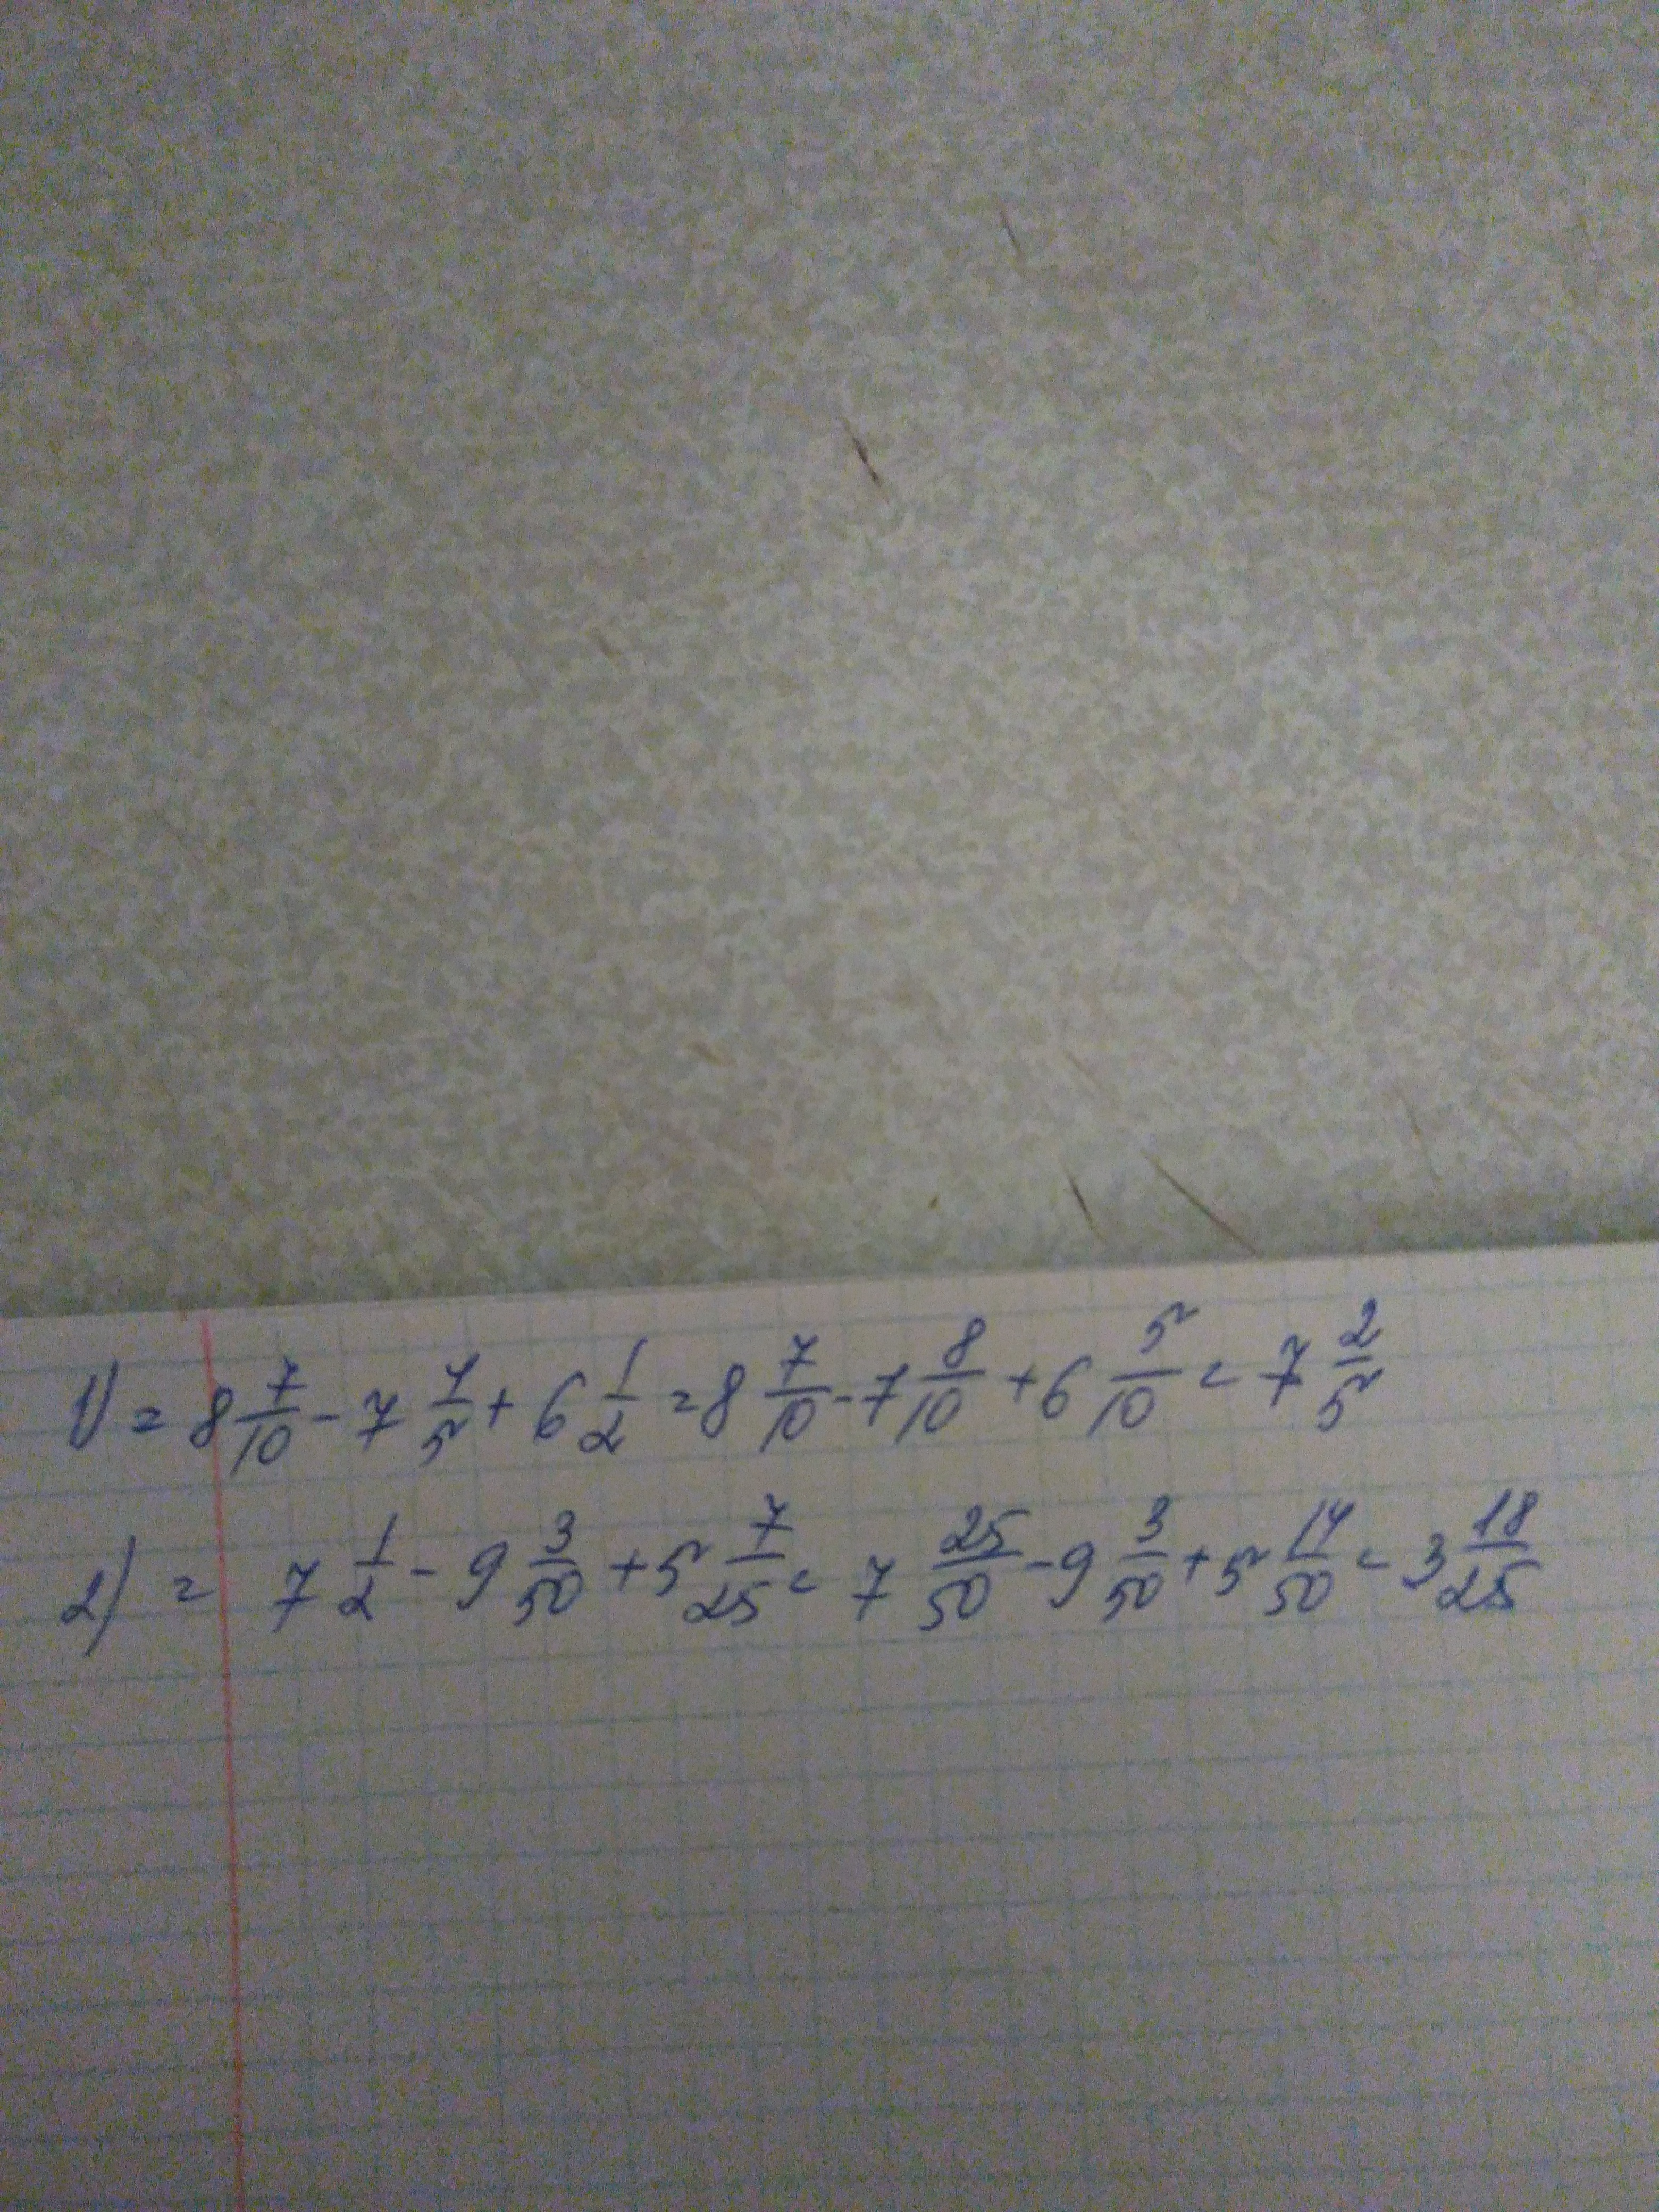 1) = 8 7/10 - 7 4/5 + 6 1/2 = 8 7/10 - 7 8/10 + 6 5/10 = 7 2/5
2) = 7 1/2 - 9 3/50 + 5 7/25 = 7 25/50 - 9 3/50 + 5 14/50 = 3 18/25